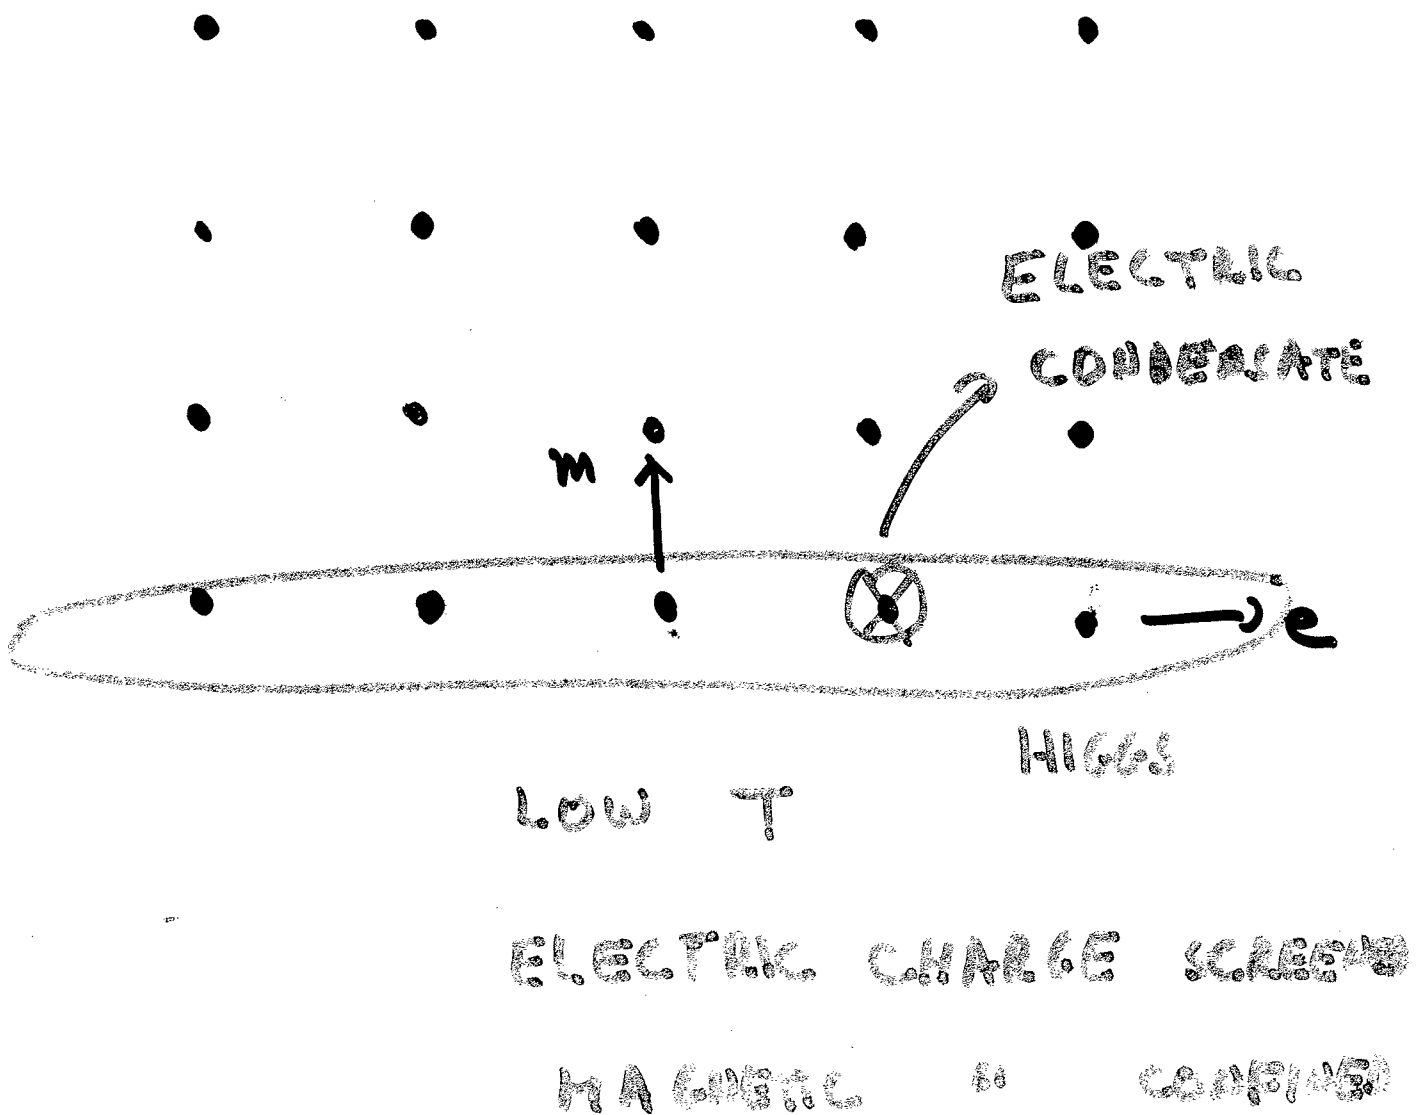 ELECTRIC
CONDENSATE
m
e
HIGGS
LOW T
ELECTRIC CHARGE SCREENED
MAGNETIC " CONFINED